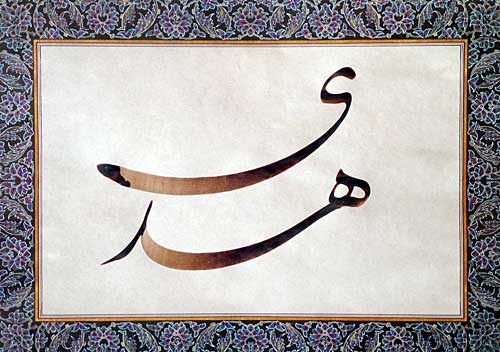 هدی